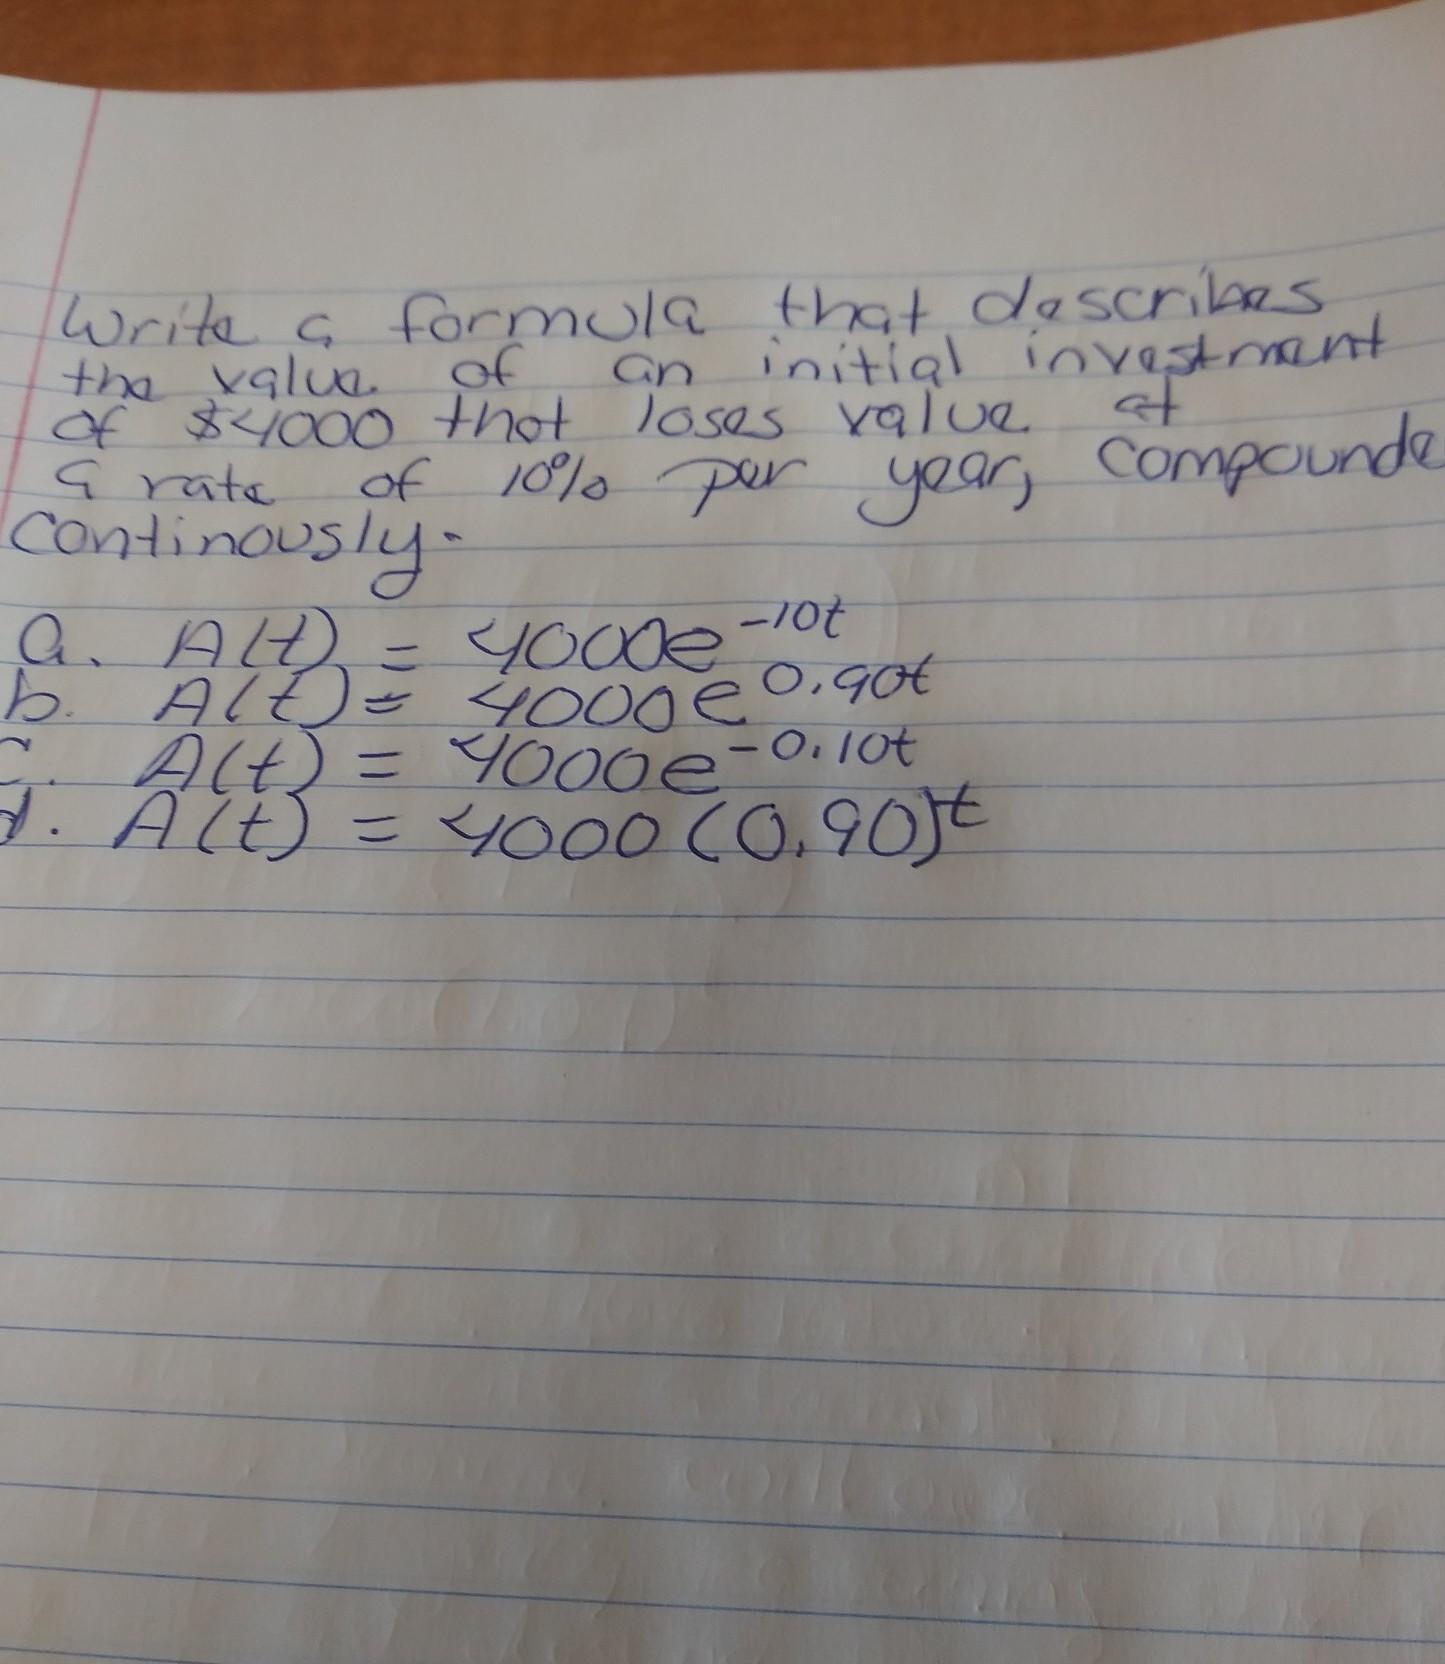 Write a formula that describes
the value of an initial investment
of $4000 that loses value at
a rate of 10% per year, compounde
continously.
a. A(t) = 4000e^-10t
b. A(t) = 4000e^0.90t
c. A(t) = 4000e^-0.10t
d. A(t) = 4000(0.90)^t